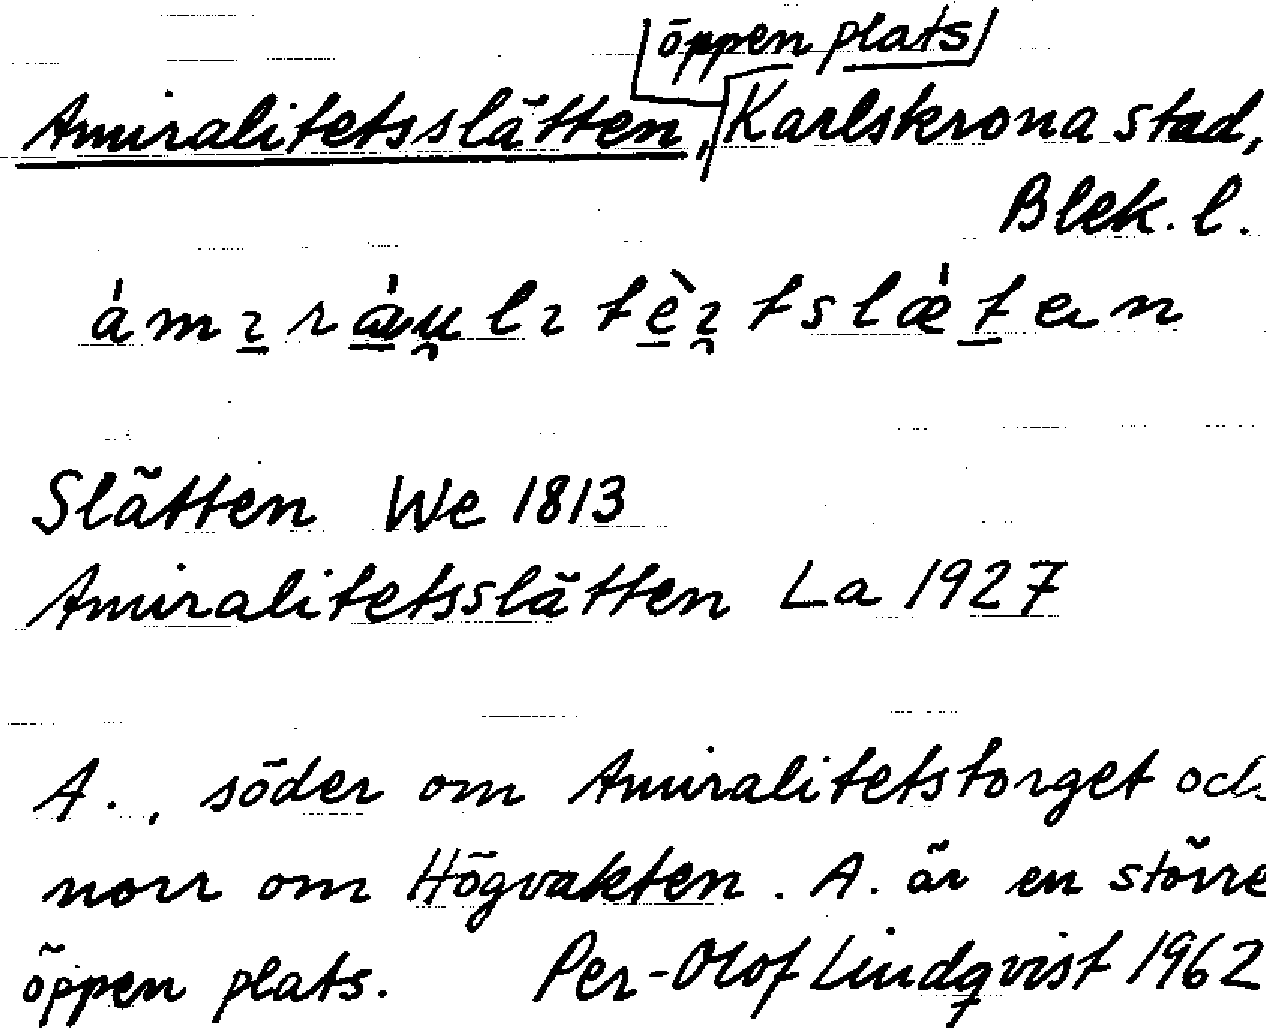 öppen plats
Amiralitetsslätten, Karlskrona stad,
Blek. l.
Slätten We 1813
Amiralitetsslätten La 1927
A., söder om Amiralitetstorget och
norr om Högvakten. A. är en större
öppen plats. Per-Olof Lindqvist 1962